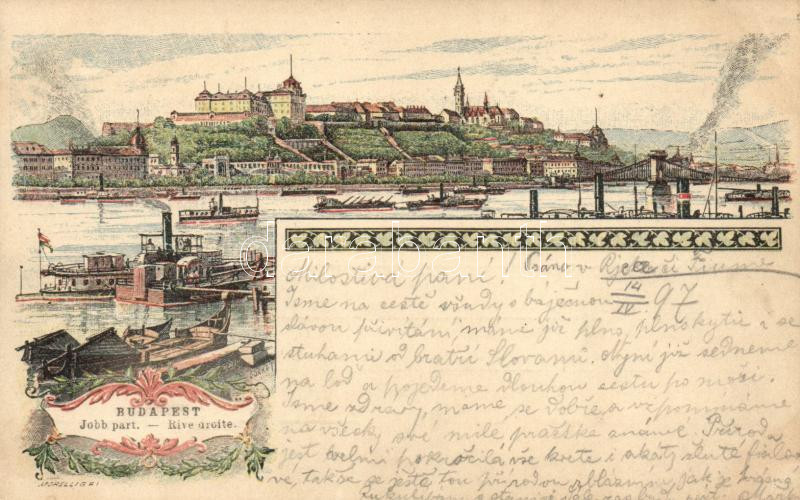 BUDAPEST
Jobb part. — Rive droite.
MORELLI G. 81
darabanth
Milostivá paní! Psáno v Rjeke či Fiume
Jsme na cestě všudy s báječnou 14/IV 97
slávou přivítáni, máme již plno kytic a se
stuhami od bratří Slovanů. Nyní již sedneme
na loď a pojedeme dlouhou cestu po moři.
Jsme zdrávy, máme se dobře a vzpomínáme
na všecky své milé pražské známé. Příroda
jest velmi pokročilá vše kvete i akáty žluté
vé, takže se ještě tou přírodou zblázním, jak je krásná